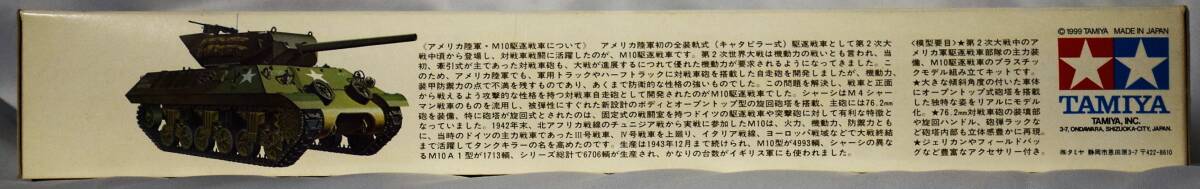 〈アメリカ陸軍・M10駆逐戦車について〉 アメリカ陸軍初の全装軌式(キャタピラー式)駆逐戦車として第2次大
戦中頃から登場し、対戦車戦闘に活躍したのが、M10駆逐戦車です。第2次世界大戦は機動力の戦いとも言われ、当
初、牽引式が主であった対戦車砲も、大戦が進展するにつれて優れた機動力が要求されるようになってきました。こ
のため、アメリカ陸軍でも、軍用トラックやハーフトラックに対戦車砲を搭載した自走砲を開発しましたが、機動力、
装甲防禦力の点で不満を残すものであり、あくまで防衛的な性格の強いものでした。この問題を解決し、戦車と正面
から戦えるような攻撃的な性格を持つ対戦車自走砲として開発されたのがM10駆逐戦車でした。シャーシはM4シャー
マン戦車のものを流用し、被弾性にすぐれた新設計のボディとオープントップ型の旋回砲塔を搭載、主砲には76.2mm
砲を装備、特に砲塔が旋回式とされたのは、固定式の戦闘室を持つドイツの駆逐戦車や突撃砲に対して有利な特徴と
なっていました。1942年末、北アフリカ戦線のチュニジア戦から実戦に参加したM10は、火力、機動力、防禦力ともに
に、当時のドイツの主力戦車であったIII号戦車、IV号戦車を上廻り、イタリア戦線、ヨーロッパ戦域などで大戦終結
まで活躍してタンクキラーの名を高めたのです。生産は1943年12月まで続けられ、M10型が4993輌、シャーシの異な
るM10A1型が1713輌、シリーズ総計で6706輌が生産され、かなりの台数がイギリス軍にも使われました。
〈模型要目〉★第2次大戦中のア
メリカ軍駆逐戦車部隊の主力装
備、M10駆逐戦車のプラスチッ
クモデル組み立てキットです。
★大きな傾斜角度の付いた車体
にオープントップ式砲塔を搭載
した独特な姿をリアルにモデル
化。★76.2mm対戦車砲の装填部
や旋回ハンドル、砲弾ラックな
ど砲塔内部も立体感豊かに再現。
★ジェリカンやフィールドバッ
グなど豊富なアクセサリー付き。
©1999 TAMIYA MADE IN JAPAN
TAMIYA
TAMIYA, INC.
3-7, ONDAWARA, SHIZUOKA-CITY, JAPAN.
㈱タミヤ 静岡市恩田原3-7 〒422-8610